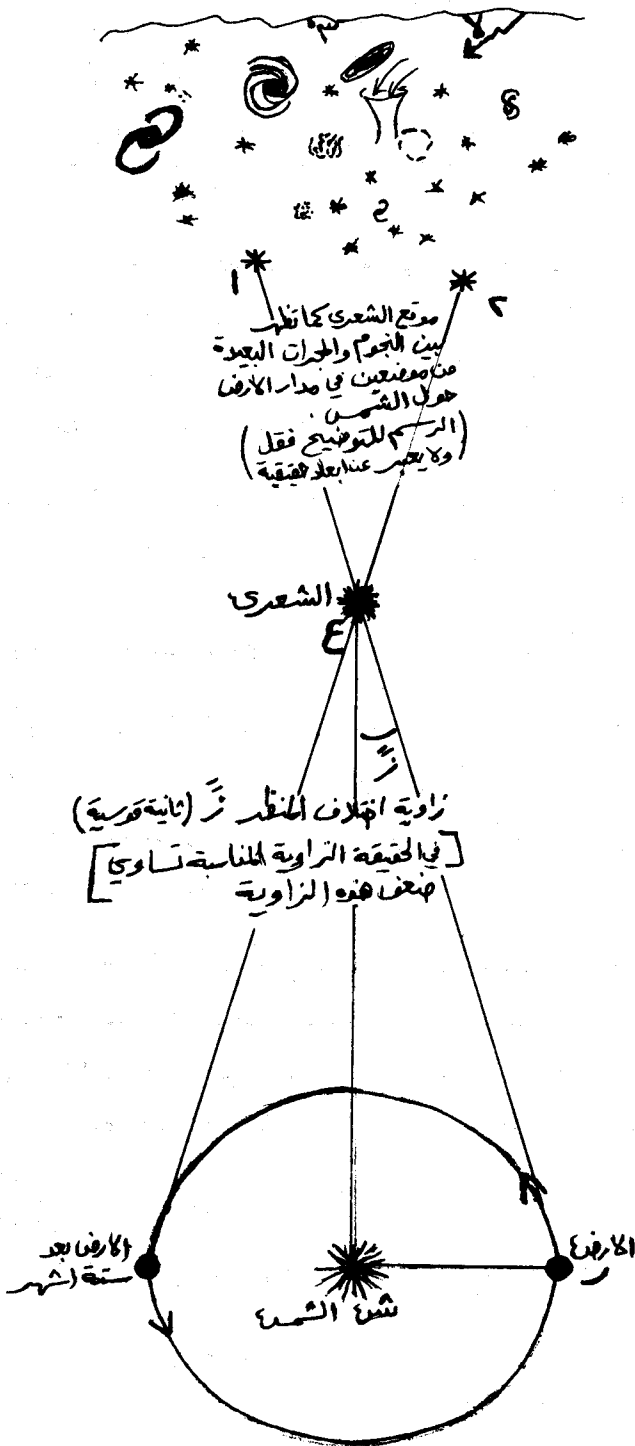 ١
٢
موقع الشعرى كما تظهر
بين النجوم والمجرات البعيدة
من موضعين في مدار الارض
حول الشمس
(الرسم للتوضيح فقط
ولا يعبر عن ابعاد حقيقية)
الشعرى
ع
زً
زاوية اختلاف المنظر زً (ثانية قوسية)
[في الحقيقة الزاوية المناسبة تساوي
ضعف هذه الزاوية]
الارض
ر
الارض بعد
ستة اشهر
الشمس